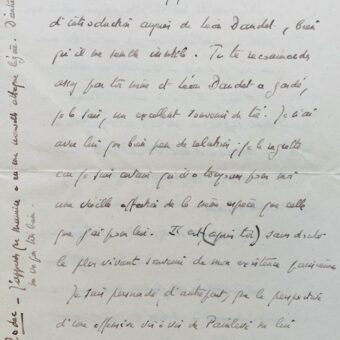 d'introduction auprès de Léon Daudet, bien
qu'il me semble inutile. Tu te recommandes
assez par toi même et Léon Daudet a gardé,
je le sais, un excellent souvenir de toi. Je n'ai
avec lui que bien peu de relations ; je le regrette
car je sais autant qu'il a toujours pour moi
une vieille affection de la même espèce que celle
que j'ai pour lui. Il est (après toi) sans doute
le plus vivant souvenir de mon existence parisienne
Je suis persuadé, d'autre part, que la perspective
d'une offensive vis à vis de Painlevé ne lui